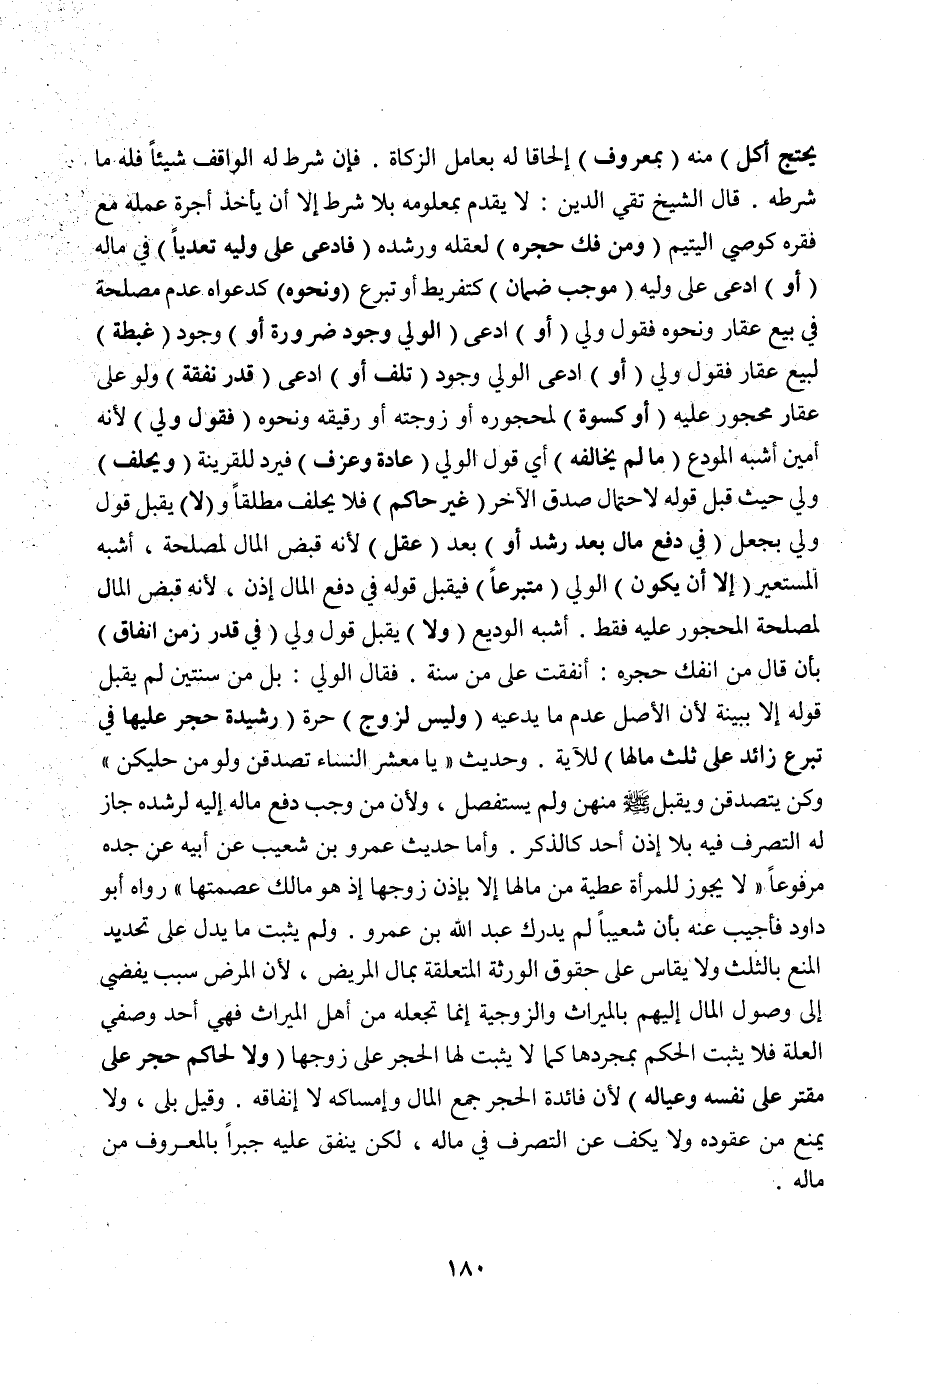 يحتج أكل ) منه ( بمعروف ) إلحاقا له بعامل الزكاة . فإن شرط له الواقف شيئاً فله ما
شرطه . قال الشيخ تقي الدين : لا يقدم بمعلومه بلا شرط إلا أن يأخذ أجرة عمله مع
فقره كوصي اليتيم ( ومن فك حجره ) لعقله ورشده ( فادعى على وليه تعدياً ) في ماله
( أو ) ادعى على وليه ( موجب ضمان ) كتفريط أو تبرع ( ونحوه ) كدعواه عدم مصلحة
في بيع عقار ونحوه فقول ولي ( أو ) ادعى ( الولي وجود ضرورة أو ) وجود ( غبطة )
لبيع عقار فقول ولي ( أو ) ادعى الولي وجود ( تلف أو ) ادعى ( قدر نفقة ) ولو على
عقار محجور عليه ( أو كسوة ) لمحجوره أو زوجته أو رقيقه ونحوه ( فقول ولي ) لأنه
أمين أشبه المودع ( ما لم يخالفه ) أي قول الولي ( عادة وعرف ) فيرد للقرينة ( ويحلف )
ولي حيث قبل قوله لاحتمال صدق الآخر ( غير حاكم ) فلا يحلف مطلقاً و ( لا ) يقبل قول
ولي بجعل ( في دفع مال بعد رشد أو ) بعد ( عقل ) لأنه قبض المال لمصلحة ، أشبه
المستعير ( إلا أن يكون ) الولي ( متبرعاً ) فيقبل قوله في دفع المال إذن ، لأنه قبض المال
لمصلحة المحجور عليه فقط . أشبه الوديع ( ولا ) يقبل قول ولي ( في قدر زمن انفاق )
بأن قال من انفك حجره : أنفقت على من سنة . فقال الولي : بل من سنتين لم يقبل
قوله إلا ببينة لأن الأصل عدم ما يدعيه ( وليس لزوج ) حرة ( رشيدة حجر عليها في
تبرع زائد على ثلث مالها ) للآية . وحديث « يا معشر النساء تصدقن ولو من حليكن »
وكن يتصدقن ويقبل ﷺ منهن ولم يستفصل ، ولأن من وجب دفع ماله إليه لرشده جاز
له التصرف فيه بلا إذن أحد كالذكر . وأما حديث عمرو بن شعيب عن أبيه عن جده
مرفوعاً « لا يجوز للمرأة عطية من مالها إلا بإذن زوجها إذ هو مالك عصمتها » رواه أبو
داود فأجيب عنه بأن شعيباً لم يدرك عبد الله بن عمرو . ولم يثبت ما يدل على تحديد
المنع بالثلث ولا يقاس على حقوق الورثة المتعلقة بمال المريض ، لأن المرض سبب يفضي
إلى وصول المال إليهم بالميراث والزوجية إنما تجعله من أهل الميراث فهي أحد وصفي
العلة فلا يثبت الحكم بمجردها كما لا يثبت لها الحجر على زوجها ( ولا لحاكم حجر على
مقتر على نفسه وعياله ) لأن فائدة الحجر جمع المال وإمساكه لا إنفاقه . وقيل بلى ، ولا
يمنع من عقوده ولا يكف عن التصرف في ماله ، لكن ينفق عليه جبراً بالمعروف من
ماله .
١٨٠